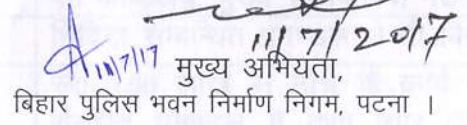 11/7/2017
11/7/17
मुख्य अभियता,
बिहार पुलिस भवन निर्माण निगम, पटना ।